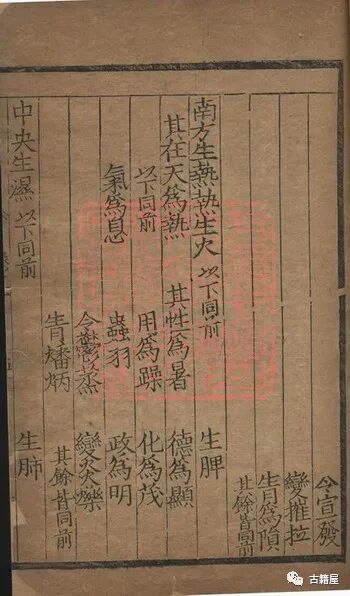 令宣發
變摧拉
眚為隕
其餘皆同前
南方生熱熱生火 以下同前 生脾
其在天為熱 其性為暑 德為顯
以下同前 用為躁 化為茂
氣為息 蟲羽 政為明
令鬱蒸 變炎爍
眚燔炳 其餘皆同前
中央生濕 以下同前 生肺
古籍屋